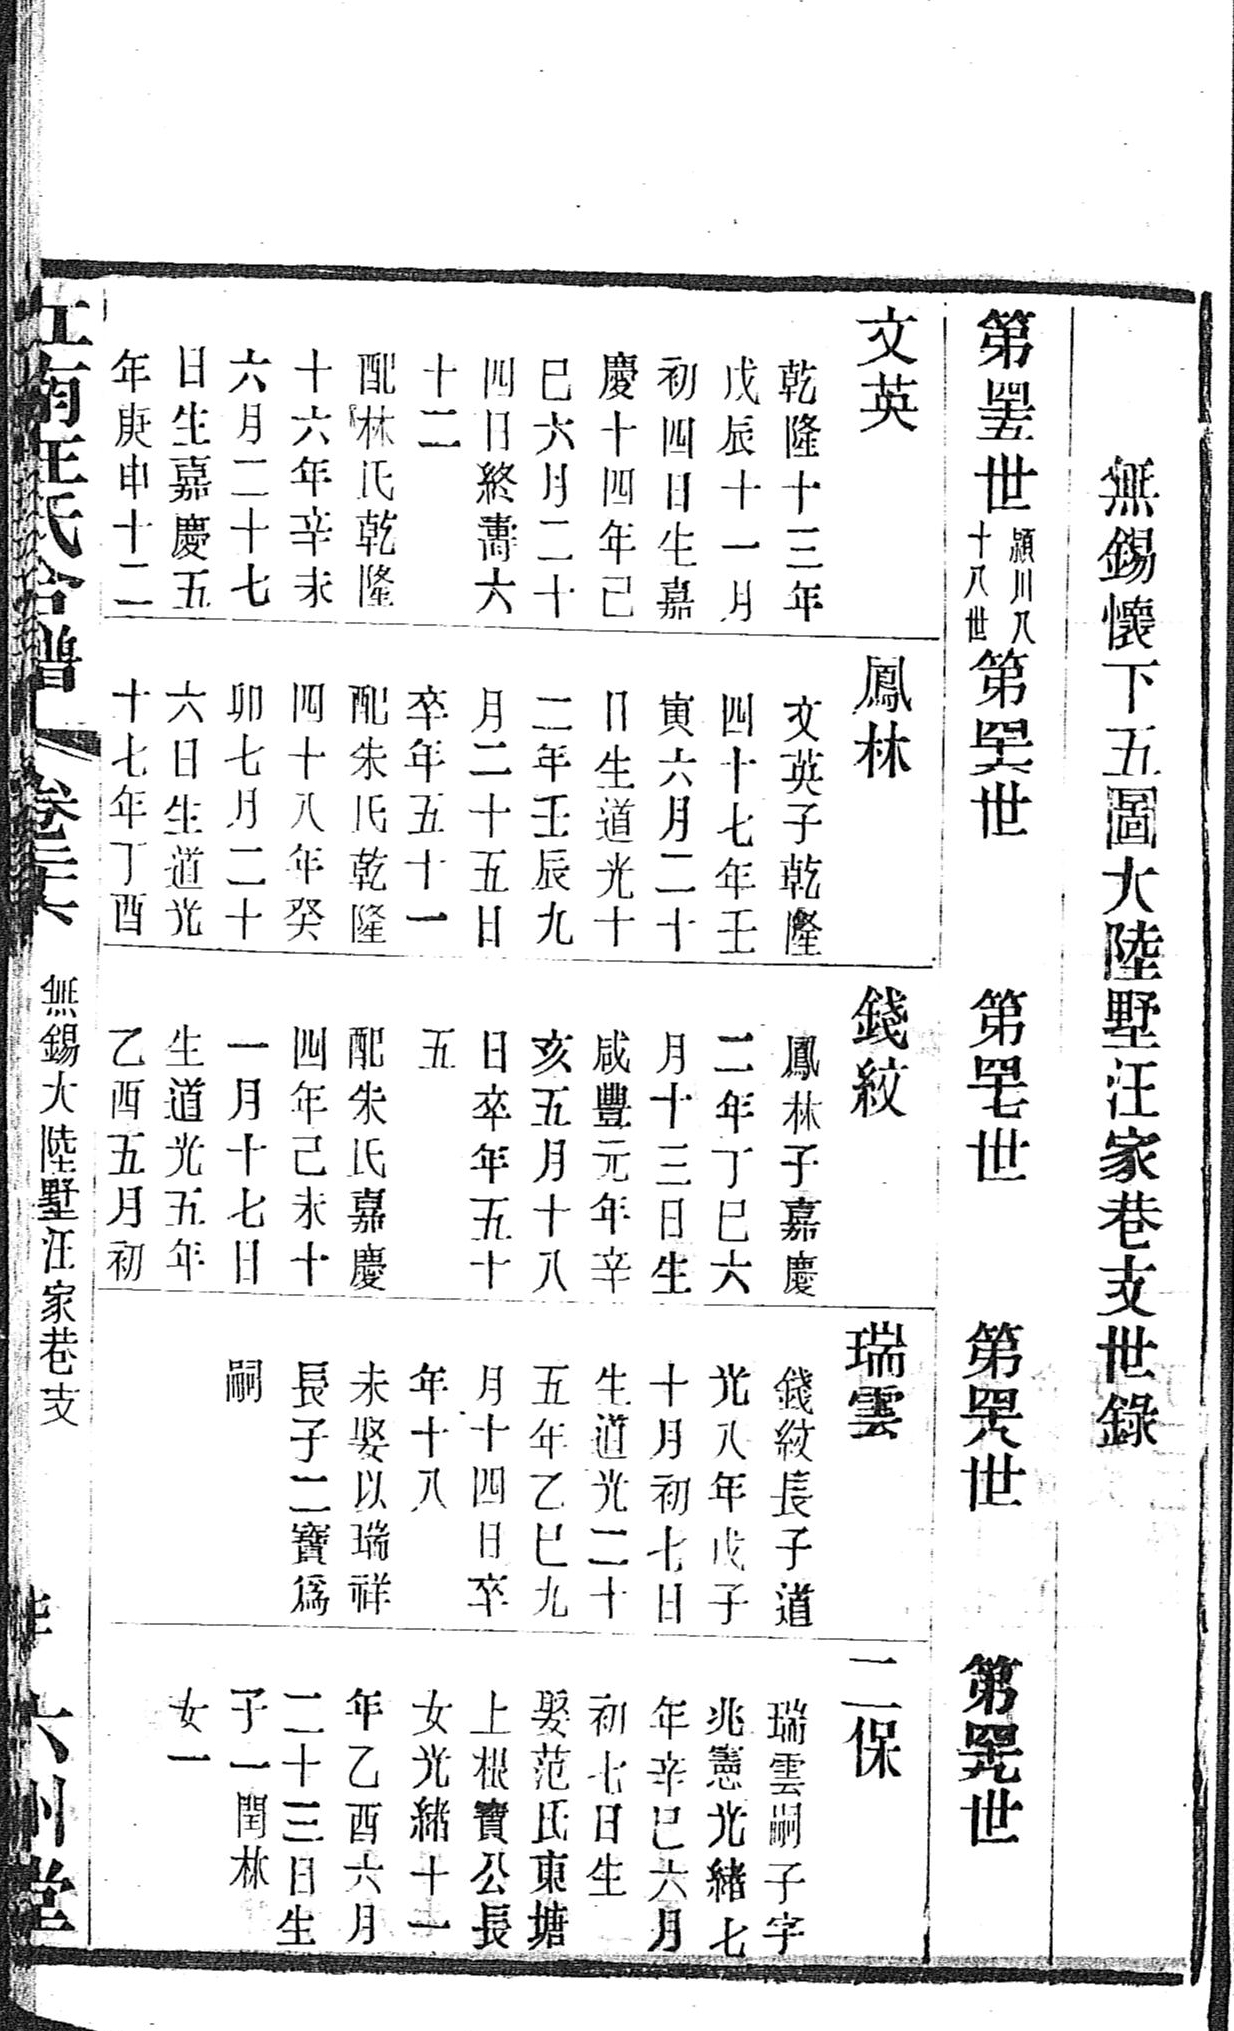 無錫懷下五圖大陸墅汪家巷支世錄
第罣世
潁川八
十八世
第罤世
第罤世
第罤世
第罤世
文英
乾隆十三年
戊辰十一月
初四日生嘉
慶十四年己
巳六月二十
四日終壽六
十二
配林氏乾隆
十六年辛未
六月二十七
日生嘉慶五
年庚申十二
鳳林
文英子乾隆
四十七年壬
寅六月二十
日生道光十
二年壬辰九
月二十五日
卒年五十一
配朱氏乾隆
四十八年癸
卯七月二十
六日生道光
十七年丁酉
錢紋
鳳林子嘉慶
二年丁巳六
月十三日生
咸豐元年辛
亥五月十八
日卒年五十
五
配朱氏嘉慶
四年己未十
一月十七日
生道光五年
乙酉五月初
瑞雲
錢紋長子道
光八年戊子
十月初七日
生道光二十
五年乙巳九
月十四日卒
年十八
未娶以瑞祥
長子二寶爲
嗣
二保
瑞雲嗣子字
兆憲光緒七
年辛巳六月
初七日生
娶范氏東塘
上根寶公長
女光緒十一
年乙酉六月
二十三日生
子一閏林
女一
江南汪氏合譜
卷三六
無錫大陸墅汪家巷支
六州堂